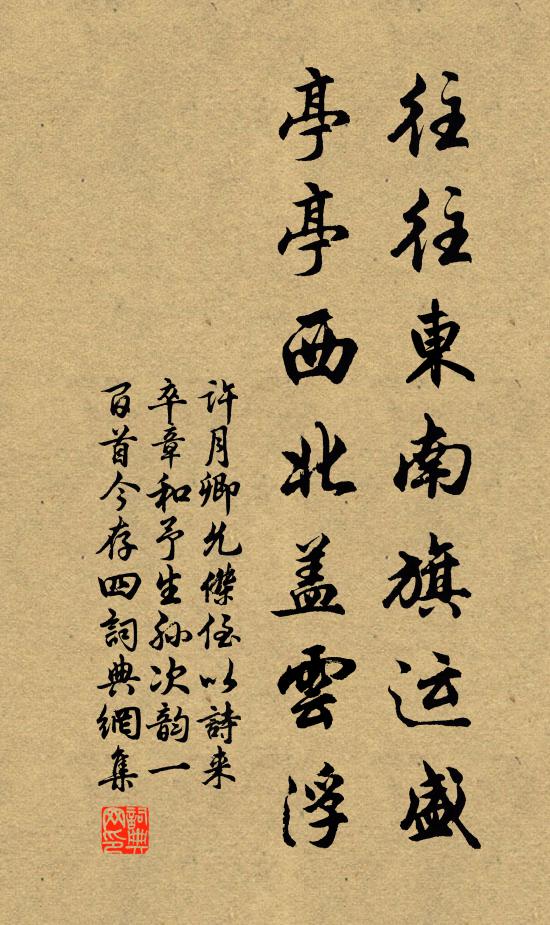 往往東南旗运盛
亭亭西北盖雲浮
許月卿允傑侄以詩来
卒章和予生孙次韵一
百首今存四詞典網集
詞典网印